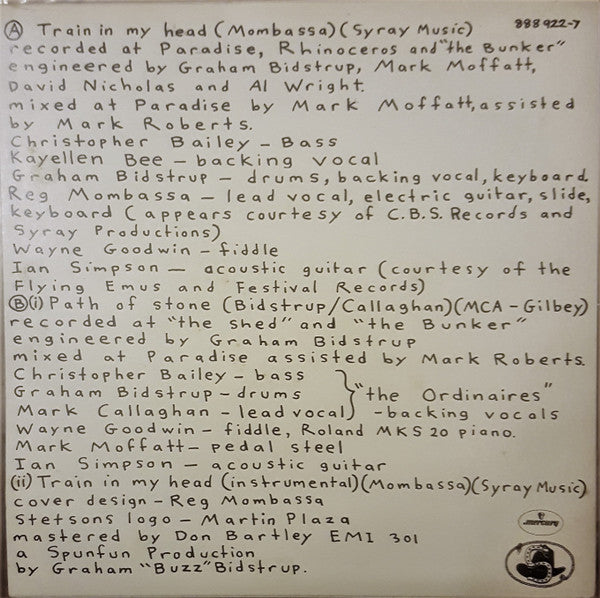 Ⓐ Train in my head (Mombassa)(Syray Music) 888 922-7
recorded at Paradise, Rhinoceros and "the Bunker"
engineered by Graham Bidstrup, Mark Moffatt,
David Nicholas and Al Wright.
mixed at Paradise by Mark Moffatt, assisted
by Mark Roberts.
Christopher Bailey – Bass
Kayellen Bee – backing vocal
Graham Bidstrup – drums, backing vocal, keyboard.
Reg Mombassa – lead vocal, electric guitar, slide,
keyboard (appears courtesy of C.B.S. Records and
Syray Productions)
Wayne Goodwin – fiddle
Ian Simpson – acoustic guitar (courtesy of the
Flying Emus and Festival Records)
Ⓑ(i) Path of stone (Bidstrup/Callaghan)(MCA – Gilbey)
recorded at "the shed" and "the Bunker"
engineered by Graham Bidstrup
mixed at Paradise assisted by Mark Roberts.
Christopher Bailey – bass
Graham Bidstrup – drums "the Ordinaires"
Mark Callaghan – lead vocal – backing vocals
Wayne Goodwin – fiddle, Roland MKS 20 piano.
Mark Moffatt – pedal steel
Ian Simpson – acoustic guitar
(ii) Train in my head (instrumental)(Mombassa)(Syray Music)
cover design – Reg Mombassa
Stetsons logo – Martin Plaza
mastered by Don Bartley EMI 301
a Spunfun Production
by Graham "Buzz" Bidstrup.
mercury